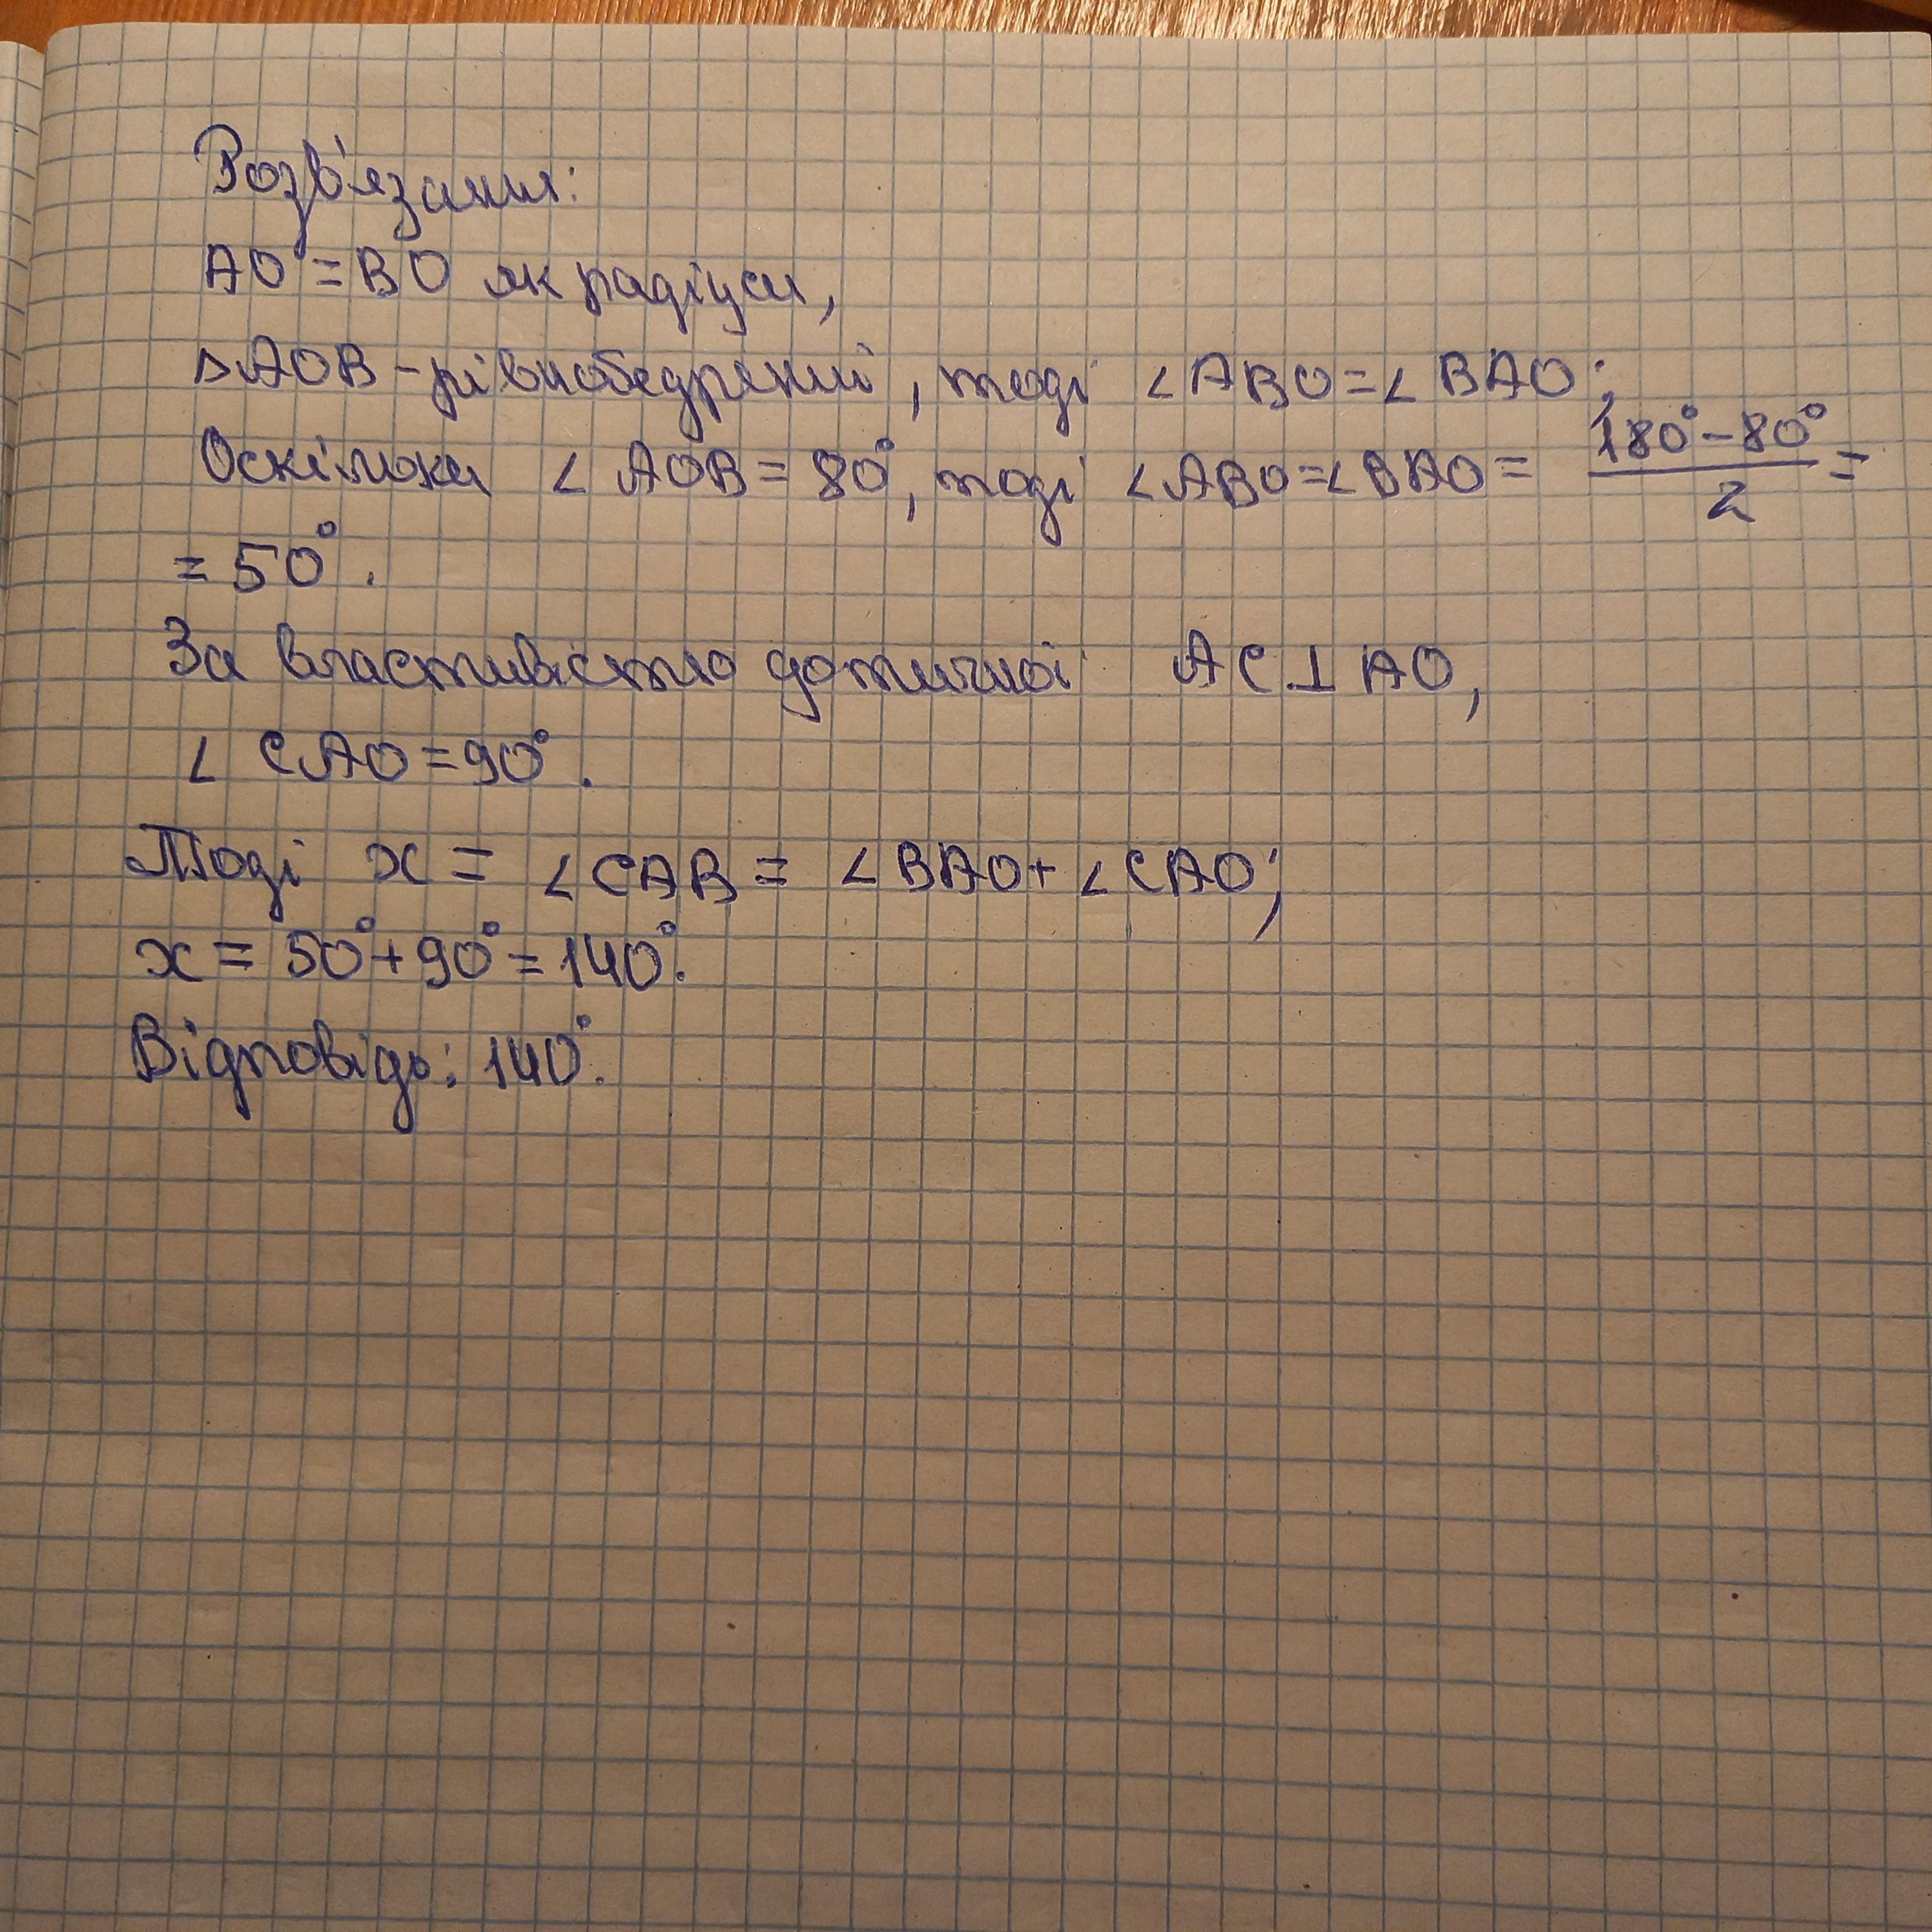 Розв'язання:
AO = BO як радіуси,
△AOB - рівнобедрений, тоді ∠ABO = ∠BAO;
Оскільки ∠AOB = 80°, тоді ∠ABO = ∠BAO = (180° - 80°)/2 =
= 50°.
За властивістю дотичної AC ⊥ AO,
∠CAO = 90°.
Тоді x = ∠CAB = ∠BAO + ∠CAO;
x = 50° + 90° = 140°.
Відповідь: 140°.